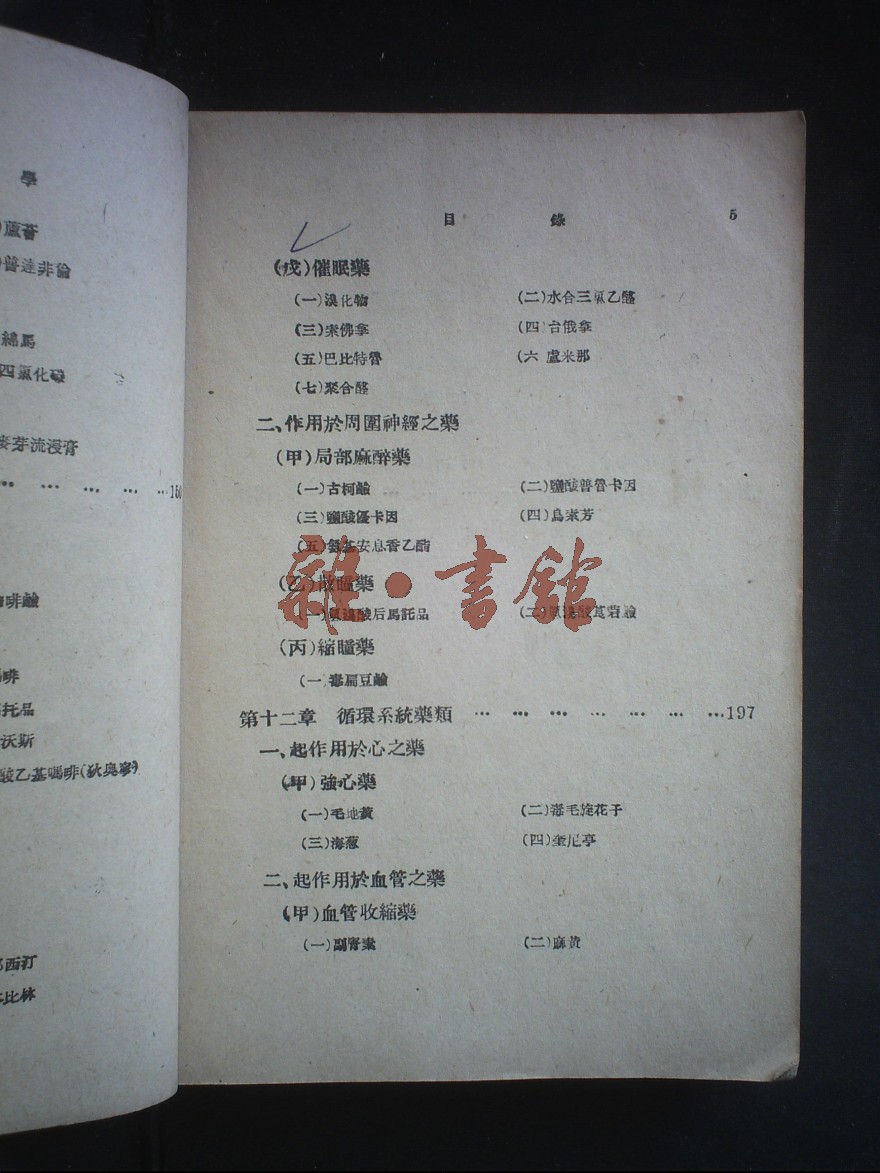 學
蘆薈
普達非倫
綿馬
四氯化碳
麥芽流浸膏
… … … … …150
啡鹼
啡
托品
沃斯
酸乙基嗎啡(狄奥寧)
西汀
比林
目 錄 5
(戊)催眠藥
(一)溴化物 (二)水合三氯乙醛
(三)索佛拿 (四)台俄拿
(五)巴比特魯 (六 盧米那
(七)聚合醛
二、作用於周圍神經之藥
(甲)局部麻醉藥
(一)古柯鹼 (二)鹽酸普魯卡因
(三)鹽酸優卡因 (四)烏素芳
(五)氨基安息香乙酯
(乙)散瞳藥
(一)氫溴酸后馬託品 (二)氫溴酸莨菪鹼
(丙)縮瞳藥
(一)毒扁豆鹼
第十二章 循環系統藥類 … … … … … … …197
一、起作用於心之藥
(甲)強心藥
(一)毛地黃 (二)毒毛旋花子
(三)海葱 (四)奎尼亭
二、起作用於血管之藥
(甲)血管收縮藥
(一)副腎素 (二)麻黃
雜·書館